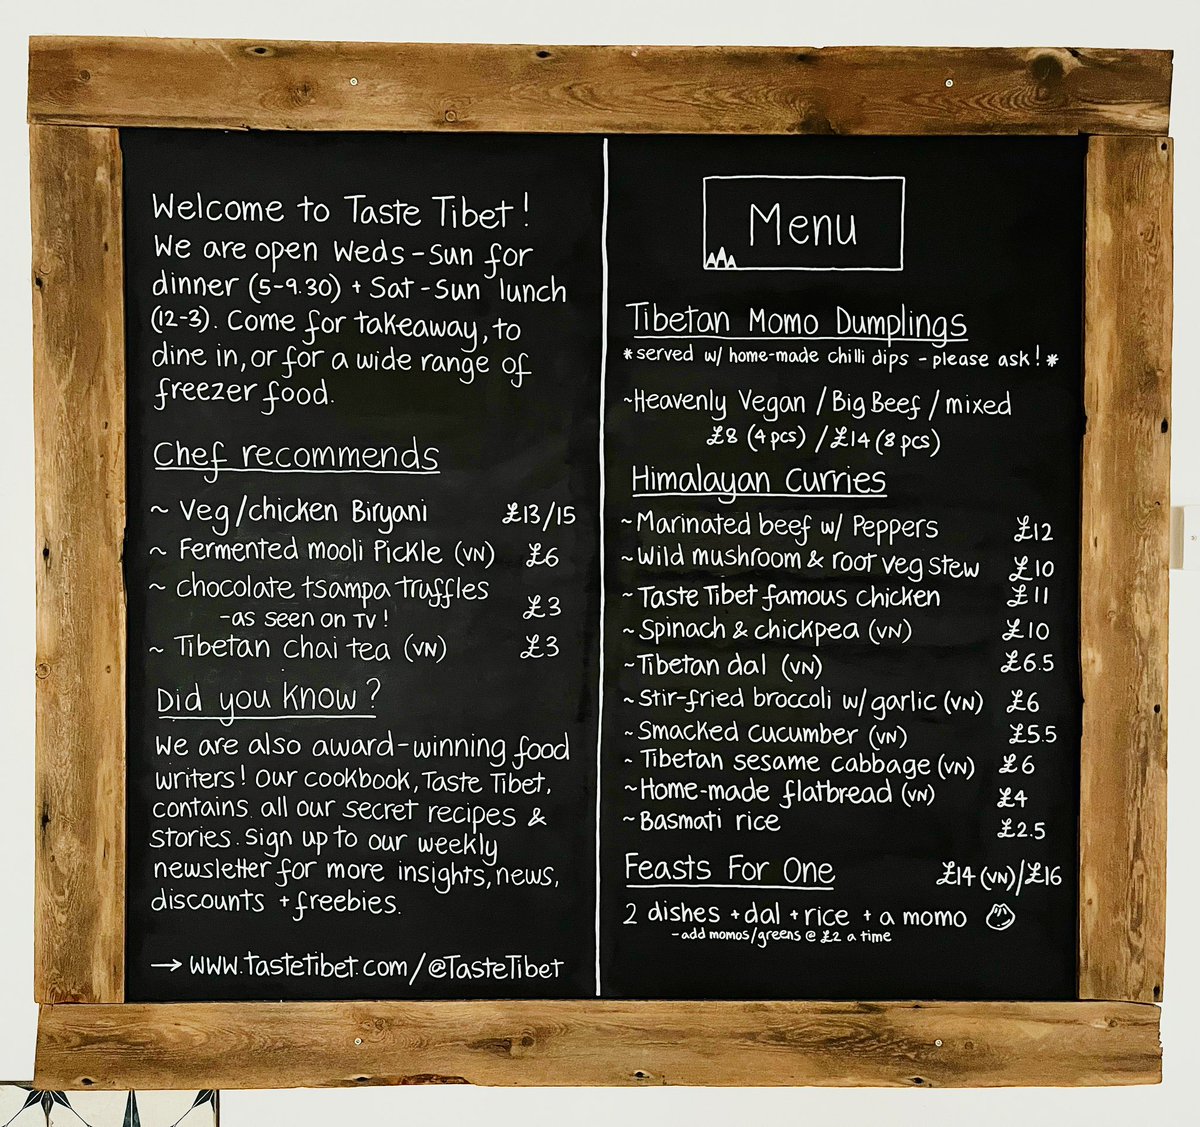 Welcome to Taste Tibet!
We are open Weds - Sun for
dinner (5-9.30) + Sat - Sun lunch
(12-3). Come for takeaway, to
dine in, or for a wide range of
freezer food.
Chef recommends
~ Veg/chicken Biryani £13/15
~ Fermented mooli Pickle (VN) £6
~ chocolate tsampa truffles
-as seen on TV! £3
~ Tibetan chai tea (VN) £3
Did you know?
We are also award-winning food
writers! Our cookbook, Taste Tibet,
contains all our secret recipes &
stories. Sign up to our weekly
newsletter for more insights, news,
discounts + freebies.
→ www.tastetibet.com/@TasteTibet
Menu
Tibetan Momo Dumplings
*served w/ home-made chilli dips - please ask!*
~Heavenly Vegan / Big Beef / mixed
£8 (4 pcs) / £14 (8 pcs)
Himalayan Curries
~Marinated beef w/ Peppers £12
~Wild mushroom & root veg stew £10
~Taste Tibet famous chicken £11
~Spinach & chickpea (VN) £10
~Tibetan dal (VN) £6.5
~Stir-fried broccoli w/ garlic (VN) £6
~Smacked cucumber (VN) £5.5
~Tibetan sesame cabbage (VN) £6
~Home-made flatbread (VN) £4
~Basmati rice £2.5
Feasts For One £14 (VN)/£16
2 dishes + dal + rice + a momo
-add momos/greens @ £2 a time